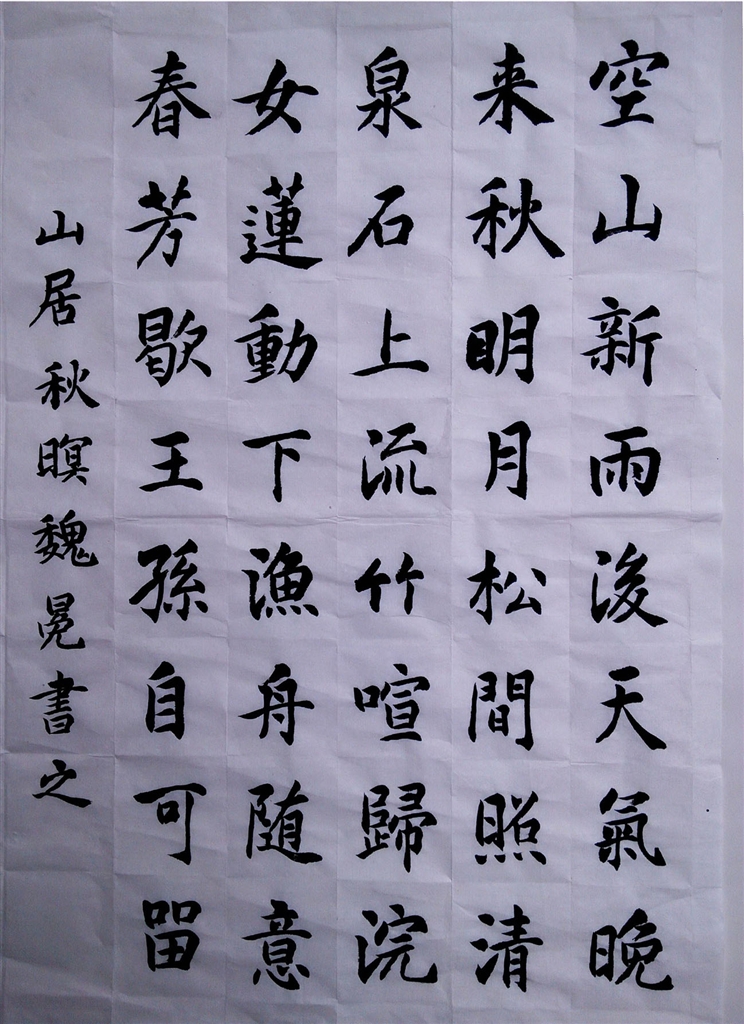 空山新雨後天氣晚
来秋明月松間照清
泉石上流竹喧歸浣
女蓮動下漁舟随意
春芳歇王孫自可留
山居秋暝魏冕書之